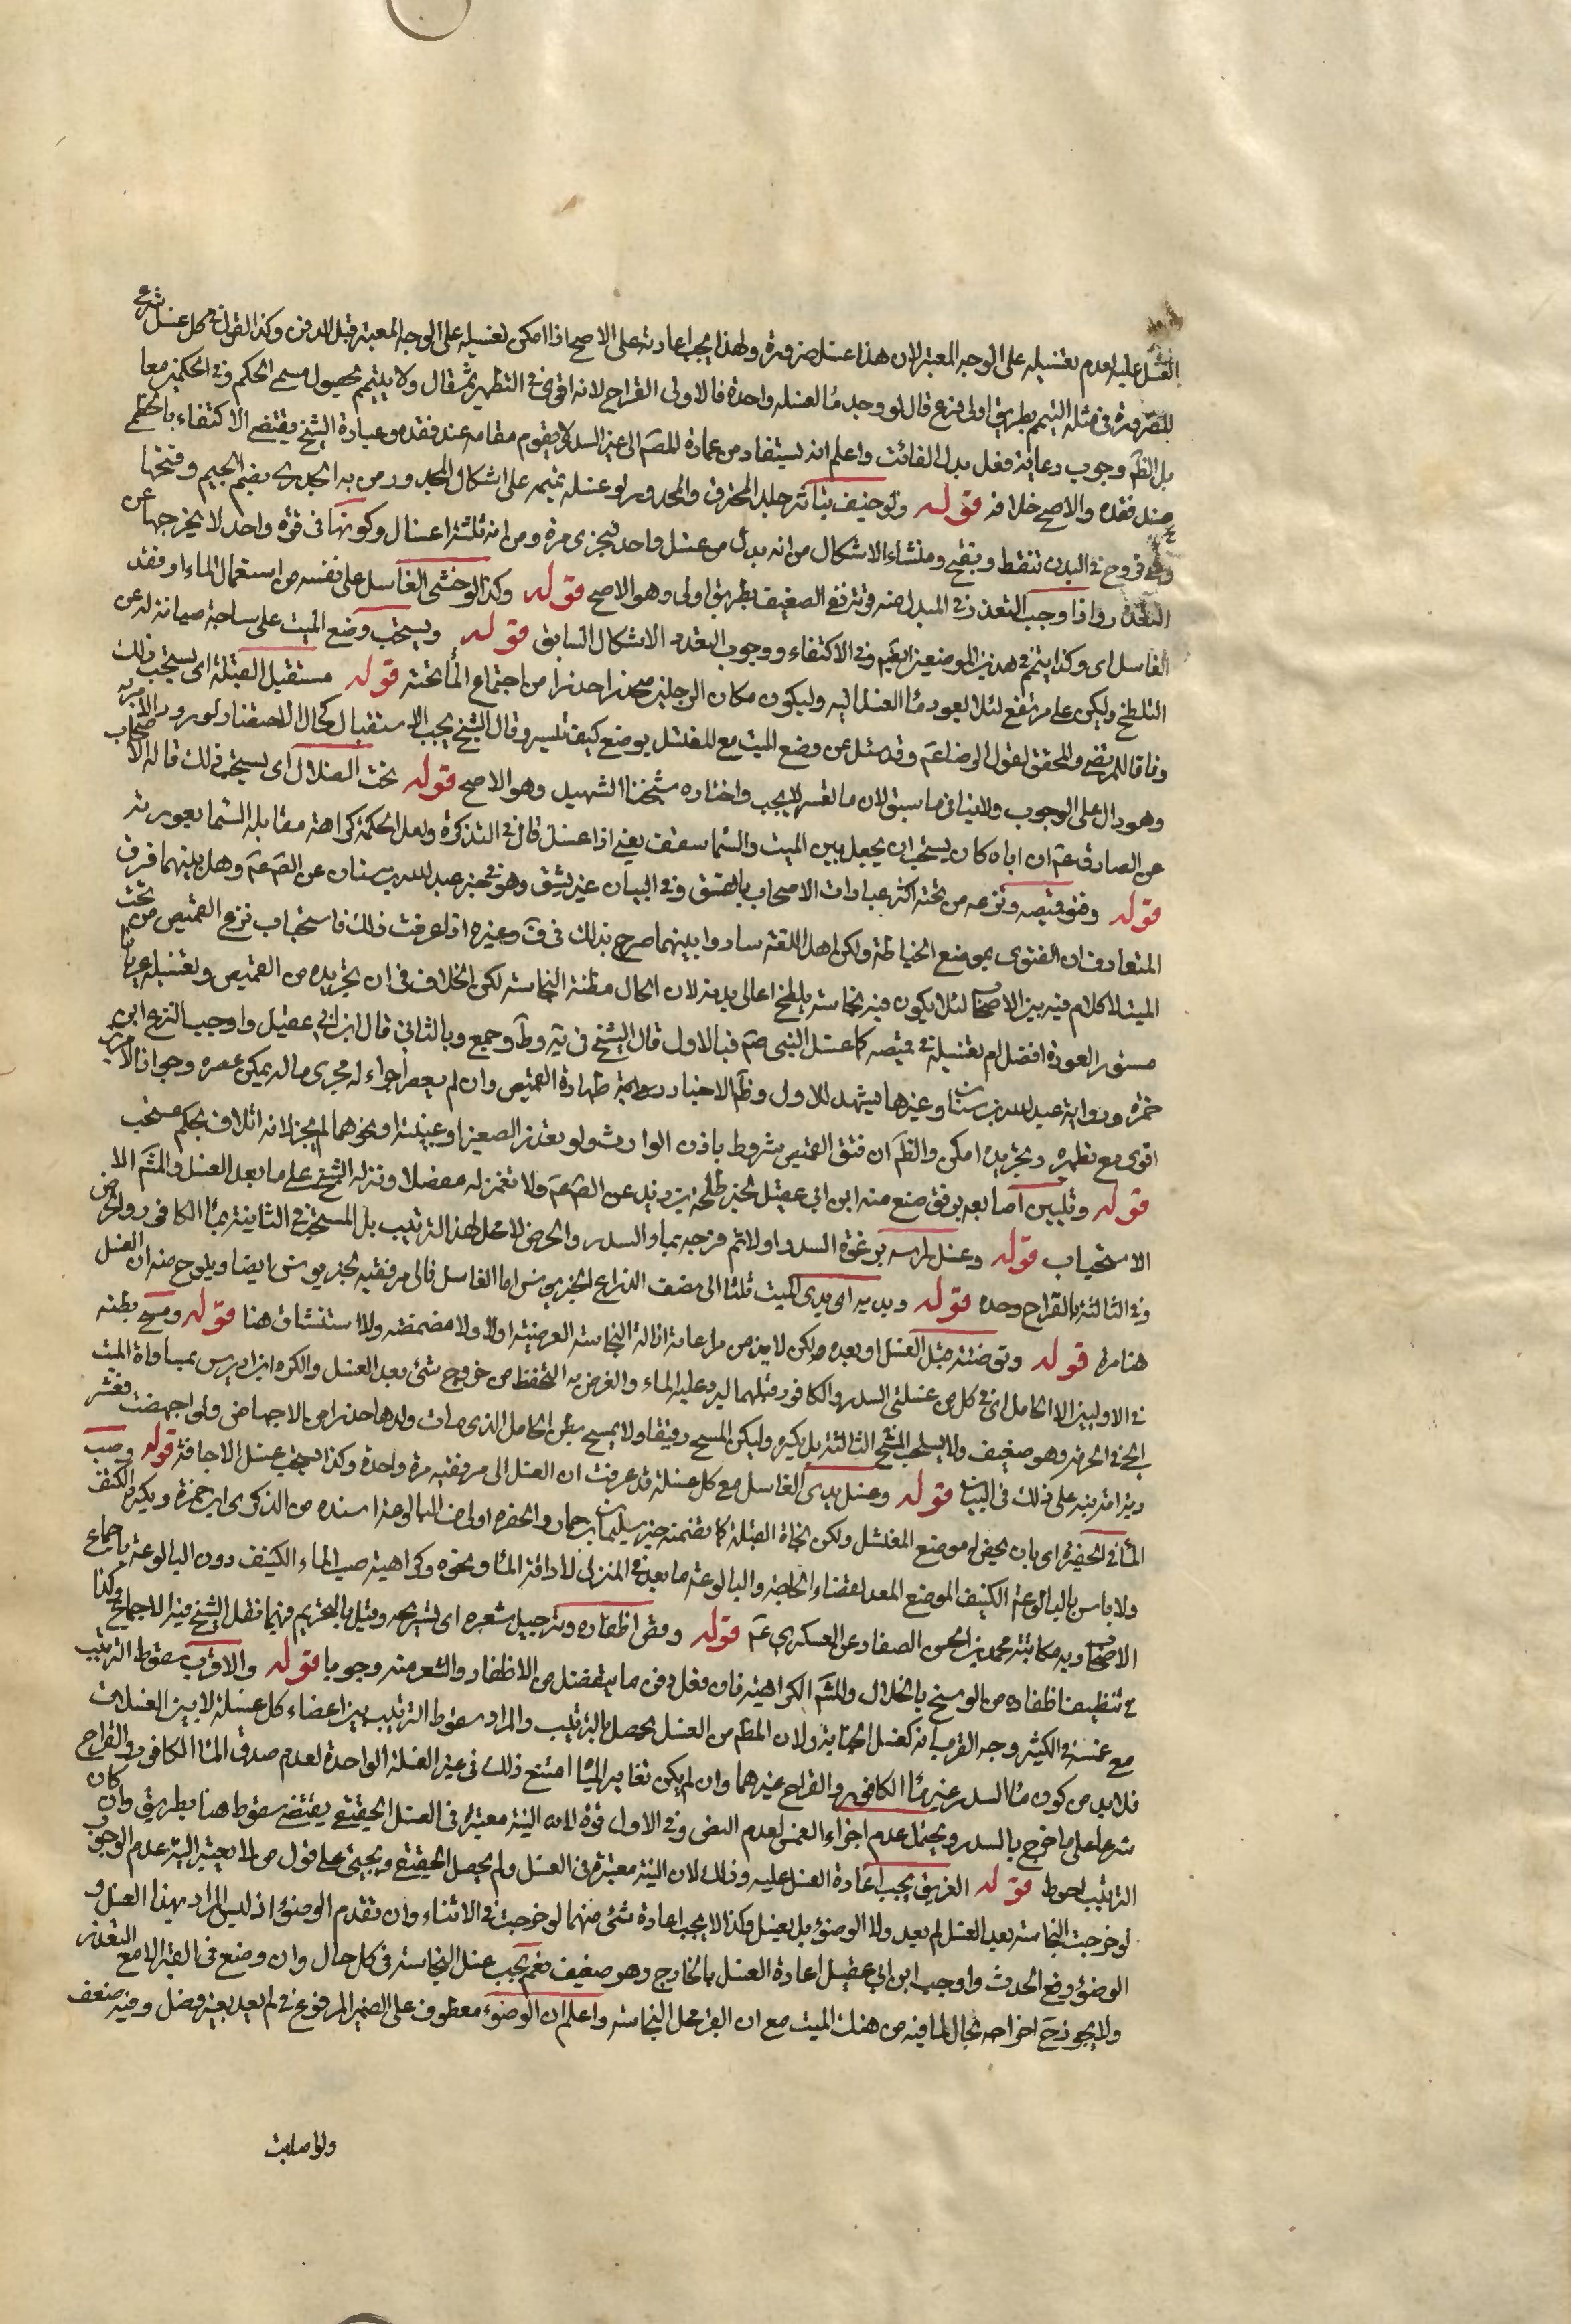 الغسل عليه لعدم تغسيله على الوجه المعتبر لان هذا غسل ضرورة ولهذا يجب اعادته على الاصح اذا امكن تغسيله على الوجه المعتبر قبل الدفن وكذا القول في كل غسل شرع
للضرورة في مثله التيمم بطريق اولى فرع قال لو وجد ماء لغسله واحدة فالاولى القراح لانه اقوى في التطهير ثم قال ولا ييمم لحصول مسمى الحكم وفي الحكمين معا
بل الظّم وجوب رعاية فعل بدل الفائت واعلم انه يستفاد من عبارة المصّم ان غير السدر لا يقوم مقامه عند فقده وعبارة الشيخ يقتضي الاكتفاء بالخطمي
عند فقده والاصح خلافه قوله ولو خيف تناثر جلد المحترق والمجدور لو غسله يممه على اشكال المجدور من به الجدري بضم الجيم وفتحها
وهو قروح في البدن تنفط وتقيح ومنشاء الاشكال من انه بدل من غسل واحد فيجزي مرة ومن انه ثلثة اغسال وكونها في قوة واحد لا يخرجها عن
التعدد واذا وجب التعدد في المبدل منه فوته رفع الضعيف بطريق اولى وهو الاصح قوله وكذا لو خشي الغاسل على نفسه من استعمال الماء او فقد
الغاسل اى وكذا ييمم في هذين الموضعين ايضا وفي الاكتفاء ووجوب التعدد الاشكال السابق قوله ويستحب وضع الميت على ساجة صيانة له عن
التلطخ وليكن على مرتفع لئلا يعود ماء الغسل اليه وليكون مكان الرجلين منحدرا حذرا من اجتماع الماء تحته قوله مستقبل القبلة اى يستحب ذلك
وفاقا للمرتضى والمحقق لقول الرضا عم وقد سئل عن وضع الميت مع المغتسل يوضع كيف تيسر وقال الشيخ يجب الاستقبال كحال الاحتضار لورود الامر به
وهو دال على الوجوب ولا ينافي ما سبق لان ما تعسر لا يجب واختاره شيخنا الشهيد وهو الاصح قوله تحت الظلال اى يستحب ذلك قاله الاصحاب
عن الصادق عم ان اباه كان يستحب ان يجعل بين الميت والسماء سقف يعني اذا غسل قال في التذكرة ولعل الحكمة كراهة مقابلة السماء بعورته
قوله وفتق قميصه ونزعه من تحته اكثر عبارات الاصحاب بالفتق وفي البيان غير يشق وهو في خبر عبدالله بن سنان عن الصّم عم وهل بينهما فرق
المتعارف ان الفتق في موضع الخياطة ولكن اهل اللغة ساووا بينهما صرح بذلك في ق وغيره اذا عرفت ذلك فاستحباب نزع القميص من تحت
الميت لا كلام فيه بين الاصحاب لئلا يكون فيه نجاسة يلطخ اعالي بدنه لان الحال مظنة النجاسة لكن الخلاف في ان تجريده من القميص وتغسيله عريانا
مستور العورة افضل ام تغسيله في قميصه كما غسل النبي صم فبالاول قال الشيخ في يه وط وجمع وبالثاني قال ابن ابي عقيل واوجب النزع ابن
حمزة ورواية عبدالله بن سنان وغيرها يشهد للاول وظم الاخبار ودوايمة طهارة القميص وان لم يعصر اجراء له مجرى ما لا يمكن عصره وجواز الامرين
اقوى مع تطهره وتجريده امكن والظّم ان فتق القميص مشروط باذن الوارث ولو تعذر لصغير او غيبة او نحوهما لم يجز لانه اتلاف بحكم مستحب
قوله وتليين اصابعه برفق منع منه ابن ابي عقيل لخبر طلحة بن زيد عن الصّم عم ولا تغمز له مفصلا ونزله الشيخ على ما بعد الغسل والمشم الا
الاستحباب قوله وغسل راسه برغوة السدر اولا ثم فرجه بماء السدر والحرض لا محل لهذا الترتيب بل المستحب في الثانية بماء الكافور والحرض
وفي الثالثة بالقراح وحده قوله ويديه اى يدى الميت ثلثا الى نصف الذراع لخبر يونس اما الغاسل فالى مرفقيه لخبر يونس ايضا ويلوح منه ان الغسل
هنا مرة قوله وتوضئته قبل الغسل او بعده ولكن لابد من مراعاة ازالة النجاسة العرضية اولا ولا مضمضة ولا استنشاق هنا قوله ومسح بطنه
في الاوليين الا الحامل اى في كل من غسلتي السدر والكافور قبلهما ليرد عليه الماء والغرض به التحفظ من خروج شئ بعد الغسل والكره ابن ادريس بمساواة الميت
الحي في الحرمة وهو ضعيف ولا يستحب المسح الثالثة بل يكره وليكن المسح رفيقا ولا يمسح بطن الحامل الذي مات ولدها حذرا من الاجهاض ولو اجهضت فعشر
دية امه نبه على ذلك في البيان قوله وغسل يدى الغاسل مع كل غسلة قد عرفت ان الغسل الى مرفقيه مرة واحدة وكذا يستحب غسل الاجانة قوله وصب
الماء في الحفيرة اى بان يحفر له موضع المغتسل ولكن تجاه القبلة كما تضمنه خبر سليمان بن خالد والحفرة اولى من البالوعة اسنده من الذكرى ابن حمزة ويكره الكنيف
ولا باس بالبالوعة الكنيف الموضع المعد لقضاء الحاجة والبالوعة ما يعد في المنزل لاراقة الماء ونحوه وكراهية صب الماء الكنيف دون البالوعة باجماع
الاصحاب وبه مكاتبة محمد بن الحسن الصفار عن العسكري عم قوله وقص اظفاره وترجيل شعره اى تسريحه وقيل بالتحريم فيهما نقل الشيخ فيه الاجماع وكذا
في تنظيف اظفاره من الوسخ بالخلال والمشم الكراهية فان فعل دفن ما ينفصل من الاظفار والشعر منه وجوبا قوله والاقرب سقوط الترتيب
مع غمسه في الكثير وجه القرب انه كغسل الجنابة ولان المطم من الغسل يحصل بالترتيب والمراد سقوط الترتيب بين اعضاء كل غسلة لا بين الغسلات
فلابد من كون ماء السدر غير ماء الكافور والقراح غيرهما وان لم يكن تغاير المياه امتنع ذلك في غير الغسلة الواحدة لعدم صدق الماء الكافور والقراح
شرعا على ما خرج بالسدر ويحتمل عدم اجزاء الغمس لعدم النص وفي الاول قوة لان النية معتبرة في الغسل الحقيقي يقتضي سقوط هنا بطريق وان كان
الترتيب احوط قوله الغريق يجب اعادة الغسل عليه وذلك لان النية معتبرة في الغسل ولم يحصل الحقيقي ويجئ على قول من لا يعتبر النية عدم الوجوب
لو خرجت النجاسة بعد الغسل لم يعد ولا الوضوء بل يغسل وكذا لا يجب اعادة شئ منهما لو خرجت في الاثناء وان تقدم الوضوء اذ ليس المراد بهذا الغسل و
الوضوء رفع الحدث واوجب ابن ابي عقيل اعادة الغسل بالخارج وهو ضعيف نعم يجب غسل النجاسة في كل حال وان وضع في القبر الا مع التعذر
ولا يجوز ح اخراجه بحال لما فيه من هتك الميت مع ان القبر محل النجاسة واعلم ان الوضوء معطوف على الضمير المرفوع في لم يعد بغير فصل وفيه ضعف
ولو اصابت